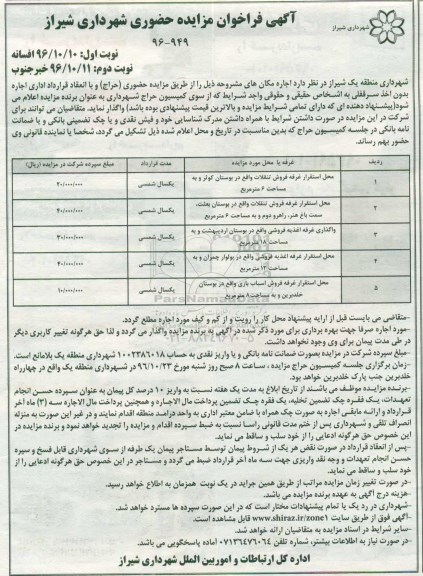 آگهی فراخوان مزایده حضوری شهرداری شیراز
شهرداری شیراز
۹۶-۹۴۹
نوبت اول: ۹۶/۱۰/۱۰ افسانه
نوبت دوم: ۹۶/۱۰/۱۱ خبرجنوب
شهرداری منطقه یک شیراز در نظر دارد اجاره مکان های مشروحه ذیل را از طریق مزایده حضوری (حراج) و با انعقاد قرارداد اداری اجاره
بدون اخذ سرقفلی به اشخاص حقیقی و حقوقی واجد شرایط که از سوی کمیسیون حراج شهرداری به عنوان برنده مزایده اعلام می
شود(پیشنهاد دهنده ای که دارای تمامی شرایط مزایده و بالاترین قیمت پیشنهادی بوده باشد) واگذار نماید. متقاضیان می توانند برای
شرکت در این مزایده در صورت داشتن شرایط با همراه داشتن مدرک شناسایی خود و فیش نقدی و یا چک تضمینی بانکی و یا ضمانت
نامه بانکی در جلسه کمیسیون حراج که بدین مناسبت در تاریخ و محل اعلام شده ذیل تشکیل می گردد، شخصا یا نماینده قانونی وی
حضور بهم رساند.
ردیف | غرفه یا محل مورد مزایده | مدت قرارداد | مبلغ سپرده شرکت در مزایده (ریال)
۱ | محل استقرار غرفه فروش تنقلات واقع در بوستان کوثر و به مساحت ۶ مترمربع | یکسال شمسی | ۲۰/۰۰۰/۰۰۰
۲ | محل استقرار غرفه فروش تنقلات واقع در بوستان بعثت، سمت باغ هنر، راهرو دوم و به مساحت ۶ مترمربع | یکسال شمسی | ۴۰/۰۰۰/۰۰۰
۳ | واگذاری غرفه اغذیه فروشی واقع در بوستان اردیبهشت و به مساحت ۱۸ مترمربع | یکسال شمسی | ۳۰/۰۰۰/۰۰۰
۴ | محل استقرار غرفه اغذیه فروشی واقع در بولوار چمران و به مساحت ۱۲ مترمربع | یکسال شمسی | ۴۰/۰۰۰/۰۰۰
۵ | محل استقرار غرفه فروش اسباب بازی واقع در بوستان خلدبرین و به مساحت ۸ مترمربع | یکسال شمسی | ۱۰/۰۰۰/۰۰۰
-متقاضی می بایست قبل از ارایه پیشنهاد محل کار را رویت و از کم و کیف مورد اجاره مطلع گردد.
-مورد اجاره صرفا جهت بهره برداری برای مورد ذکر شده در آگهی به برنده مزایده واگذار می گردد و لذا حق هرگونه تغییر کاربری دیگر
در طی مدت پیمان برای وی وجود نخواهد داشت.
-مبلغ سپرده شرکت در مزایده بصورت ضمانت نامه بانکی و یا واریز نقدی به حساب ۱۰۰۲۳۸۶۰۱۸ شهرداری منطقه یک بلامانع است.
-زمان برگزاری جلسه کمیسیون حراج مزایده ، ساعت ۸ صبح روز شنبه مورخ ۹۶/۱۰/۲۳ در شهرداری منطقه یک واقع در چهارراه
خلدبرین جنب پارک خلدبرین خواهد بود.
-برنده مزایده موظف می باشند از تاریخ ابلاغ به مدت یک هفته نسبت به واریز ۱۰ درصد کل پیمان به عنوان سپرده حسن انجام
تعهدات، یک فقره چک تضمین تخلیه، یک فقره چک تضمین پرداخت مال الاجاره و همچنین پرداخت مال الاجاره سه (۳) ماه آخر
قرارداد و ارائه مابقی اجاره به صورت چک همراه با ضامن معتبر اداری به واحد درآمد منطقه اقدام نمایند و در غیر این صورت به منزله
انصراف تلقی و شهرداری پس از ختم مدت قانونی راسا نسبت به ضبط سپرده اقدام و مزایده را تجدید خواهد نمود و برنده مزایده در
این خصوص حق هرگونه ادعایی را از خود سلب و ساقط می نماید.
-پس از انعقاد قرارداد در صورت نقض هر یک از شروط پیمان توسط مستاجر پیمان یک طرفه از سوی شهرداری قابل فسخ و سپره
حسن انجام تعهدات و وجه نقد واریزی جهت سه ماه آخر قرارداد ضبط می گردد و مستاجر در این خصوص حق هرگونه ادعایی را از
خود سلب و ساقط می نماید.
-در صورت تغییر زمان مزایده مراتب از طریق همین جراید در یک نوبت همزمان به اطلاع خواهد رسید.
-هزینه درج آگهی به عهده برنده مزایده می باشد.
-شهرداری در رد یک یا تمام پیشنهادات مختار است که در این صورت سپرده ها مسترد خواهد شد.
-آگهی فوق از طریق سایت www.shiraz.ir/zone1 قابل مشاهده است.
-سایر شرایط در اسناد مزایده به متقاضیان ارائه خواهد شد.
-در صورت نیاز به اطلاعات بیشتر، شماره تلفن ۰۷۱۳۶۴۷۶۰۶۴ آماده پاسخگویی می باشد.
اداره کل ارتباطات و اموربین الملل شهرداری شیراز